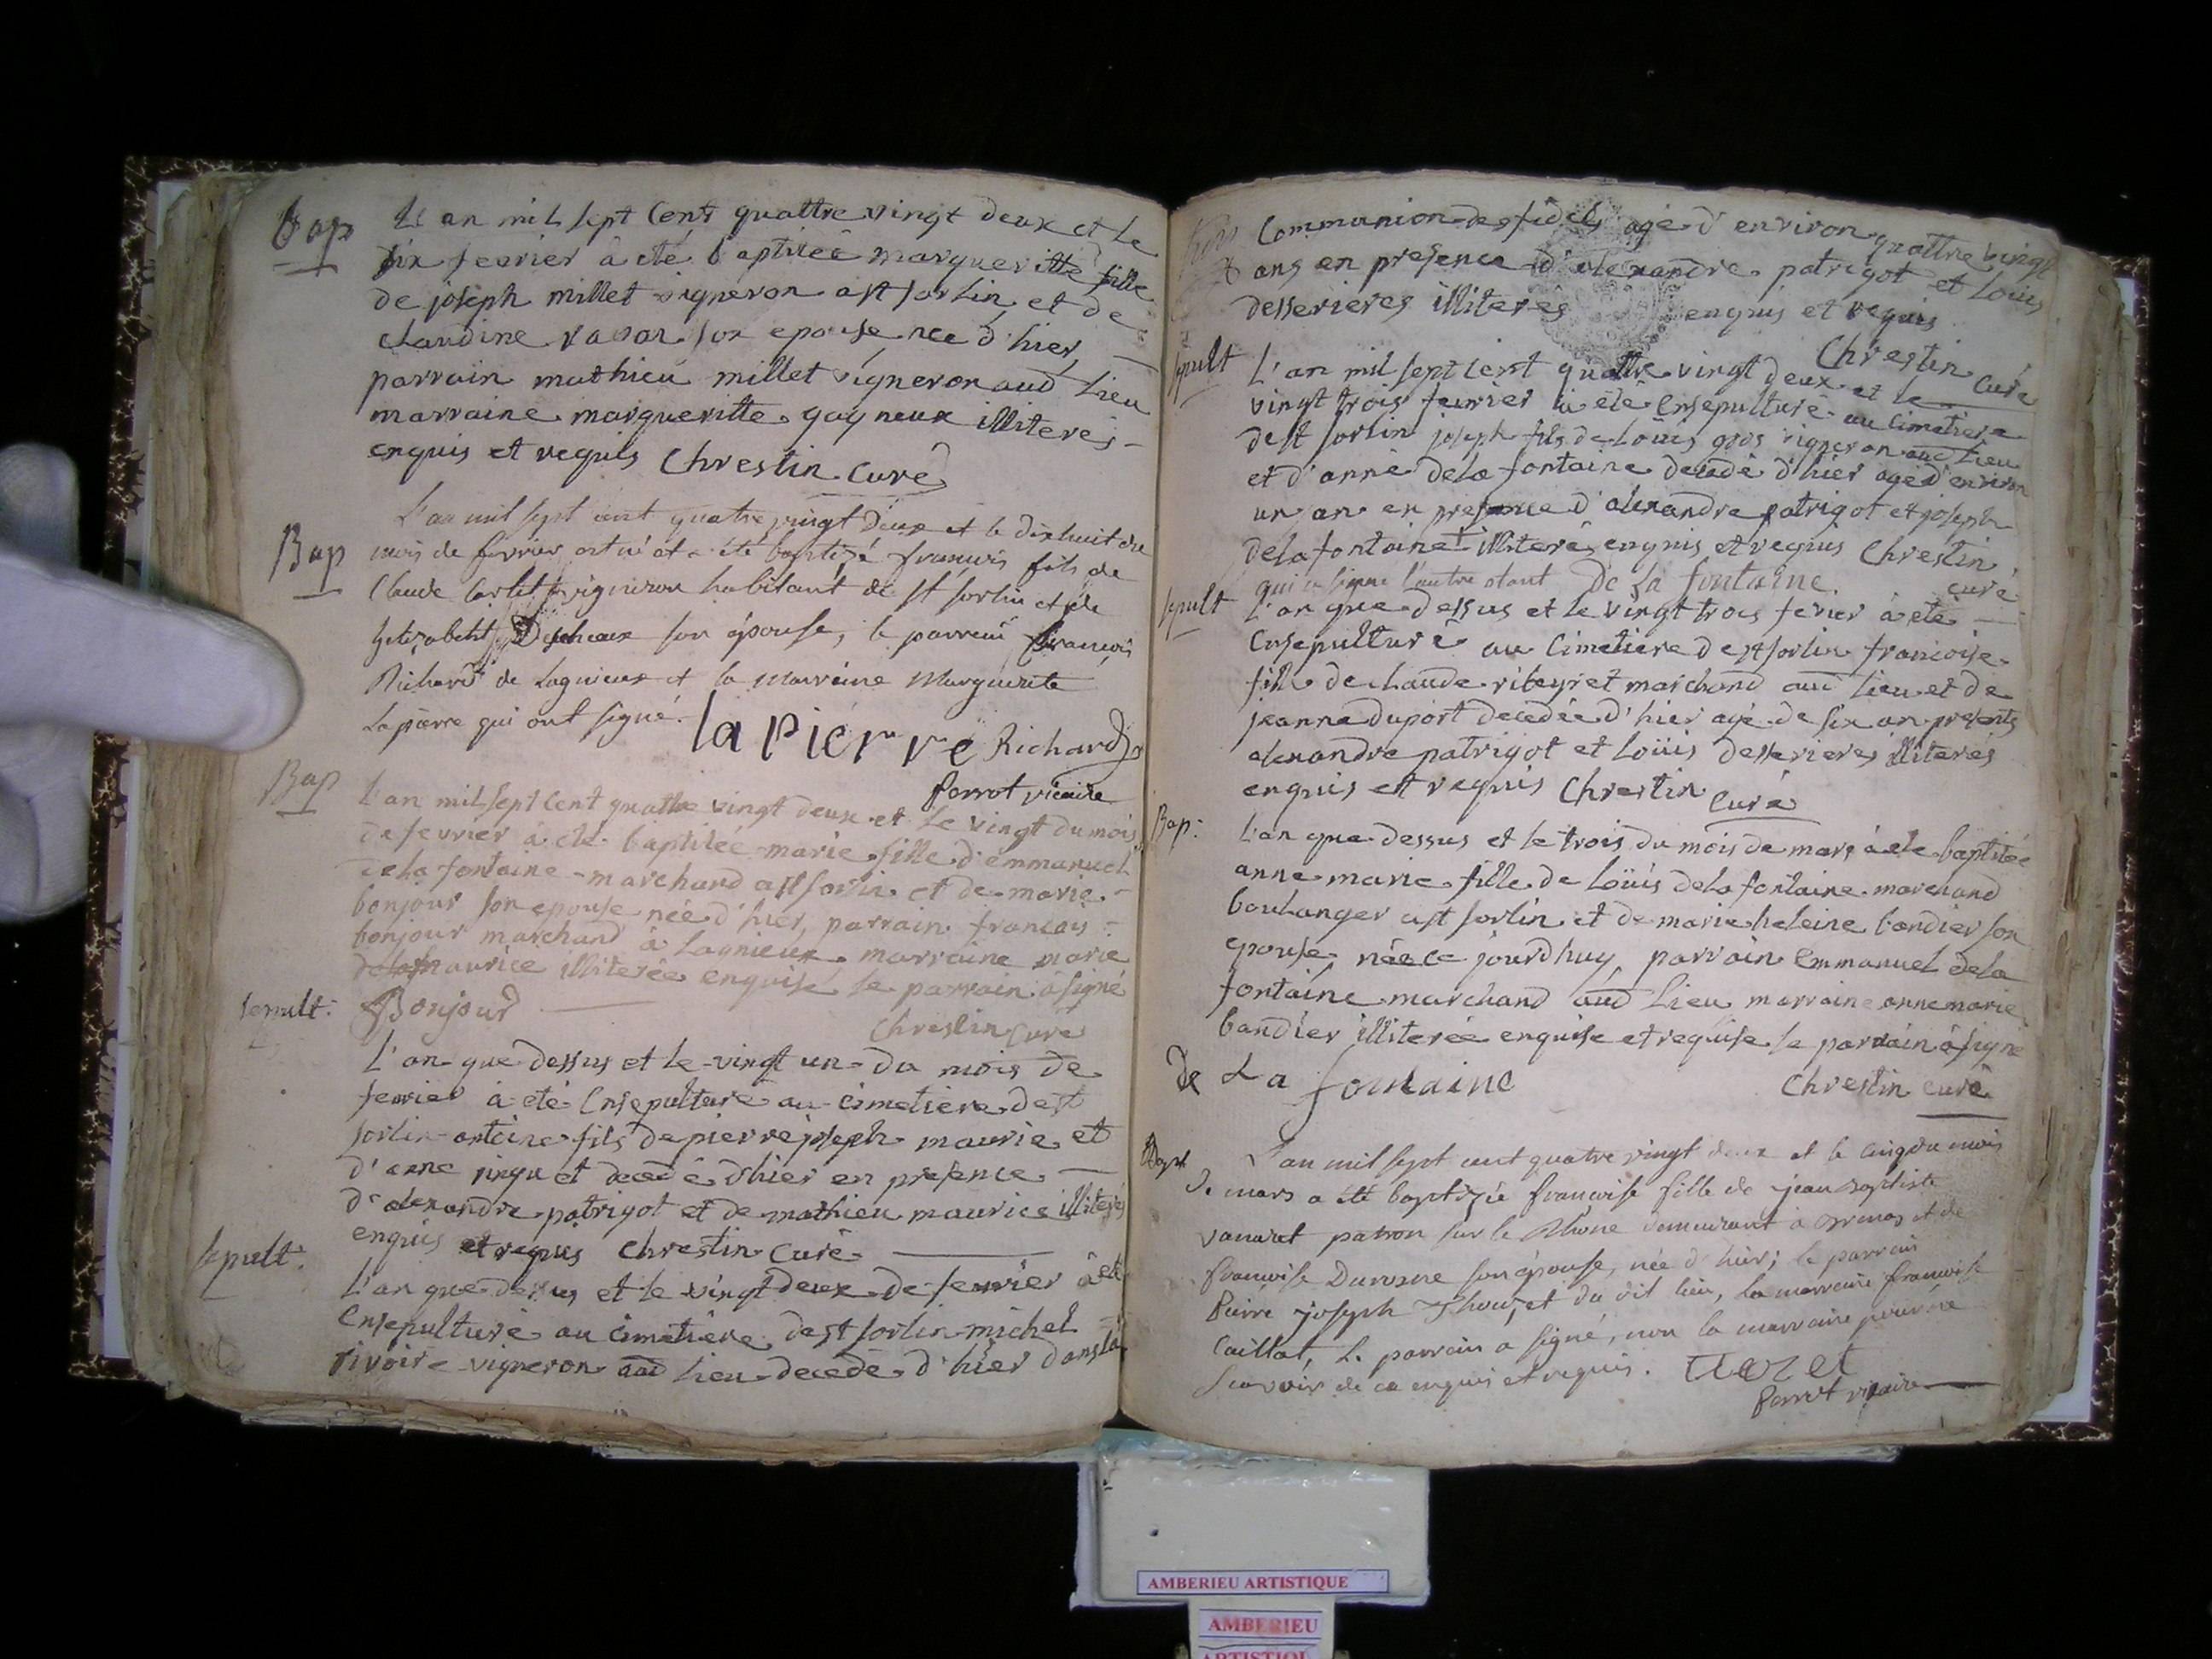 Bap L'an mil sept Cent quattre vingt deux et le
dix fevrier à eté baptiseé margueritte fille
de joseph millet vigneron a st sorlin et de
claudine son epouse neé d'hier,
parrain mathieu millet vigneron aud lieu
marraine margueritte gagneux illiteres
enquis et requis Chrestin Curé
L'an mil sept cent quatre vingt deux et le dix huit du
Bap mois de fevrier est né et a été baptizé francois fils de
Claude vigneron habitant de st sorlin et de
son épouse, le parrain francois
Richard de Lagnieux et la Marraine Marguerite
Lapierre qui ont signé. la Pierre Richard
Perrot vicaire
Bap L'an mil sept Cent quattre vingt deux et le vingt du mois
de fevrier à eté baptiseé marie fille d'emmanuel
dela fontaine marchand a st sorlin et de marie
bonjour son epouse neé d'hier, parrain francois
bonjour marchand à Lagnieux marraine marie
maurice illitereé enquise le parrain à signé
Bonjour
Chrestin Curé
sepult: L'an que dessus et le vingt un du mois de
fevrier à eté Ensepulturé au cimetiere de st
sorlin antoine fils de pierre joseph maurice et
d'anne decedé d'hier en presence
d'alexandre patrigot et de mathieu maurice illiterés
enquis et requis Chrestin Curé
sepult: L'an que dessus et le vingt deux de fevrier à eté
Ensepulturé au cimetiere de st sorlin michel
rivoire vigneron aud lieu decedé d'hier dans la
Communion des fidels agé d'environ quattre vingt
ans en presence d'alexandre patrigot et Loüis
desserieres illiterés enquis et requis
Chrestin Curé
sepult L'an mil sept cent quattre vingt deux et le
vingt trois fevrier à eté Ensepulturé au cimetiere
de st sorlin joseph fils de Loüis gros vigneron aud lieu
et d'anne dela fontaine decedé d'hier agé d'environ
un an en presence d'alexandre patrigot et joseph
dela fontaine illiteré enquis et requis Chrestin
qui a signé l'autre étant De La fontaine. curé
sepult L'an que dessus et le vingt trois fevrier à eté
Ensepulturé au cimetiere de st sorlin francoise
fille de claude riteyret marchand aud lieu et de
jeanne duport decedée d'hier agé de six an presents
alexandre patrigot et Loüis desserieres illiterés
enquis et requis Chrestin Curé
Bap: L'an que dessus et le trois du mois de mars à eté baptiseé
anne marie fille de Loüis dela fontaine marchand
boulanger a st sorlin et de marie heleine bandier son
epouse neé ce jourd'huy, parrain Emmanuel dela
fontaine marchand aud lieu marraine anne marie
bandier illitereé enquise et requise le parrain à signé
De La fontaine Chrestin curé
Bapt L'an mil sept cent quatre vingt deux et le cinq du mois
de mars a été baptizée francoise fille de jean baptiste
patron sur le Rhône demeurant à et de
francoise son épouse, née d'hier; le parrain
Pierre joseph du dit lieu, la marraine francoise
Caillat, le parrain a signé, non la marraine pour ne
scavoir de ce enquis et requis.
Perrot vicaire
AMBERIEU ARTISTIQUE
AMBERIEU
ARTISTIQUE